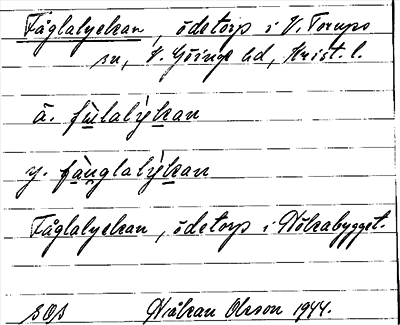 Fåglalyckan, ödetorp i V. Torups
sn, V. Göinge hd, Krist. l.
ä. fùlalỳkan
y. fànglalỳkan
Fåglalyckan, ödetorp i Nölrabygget.
SOS Håkan Olsson 1944.